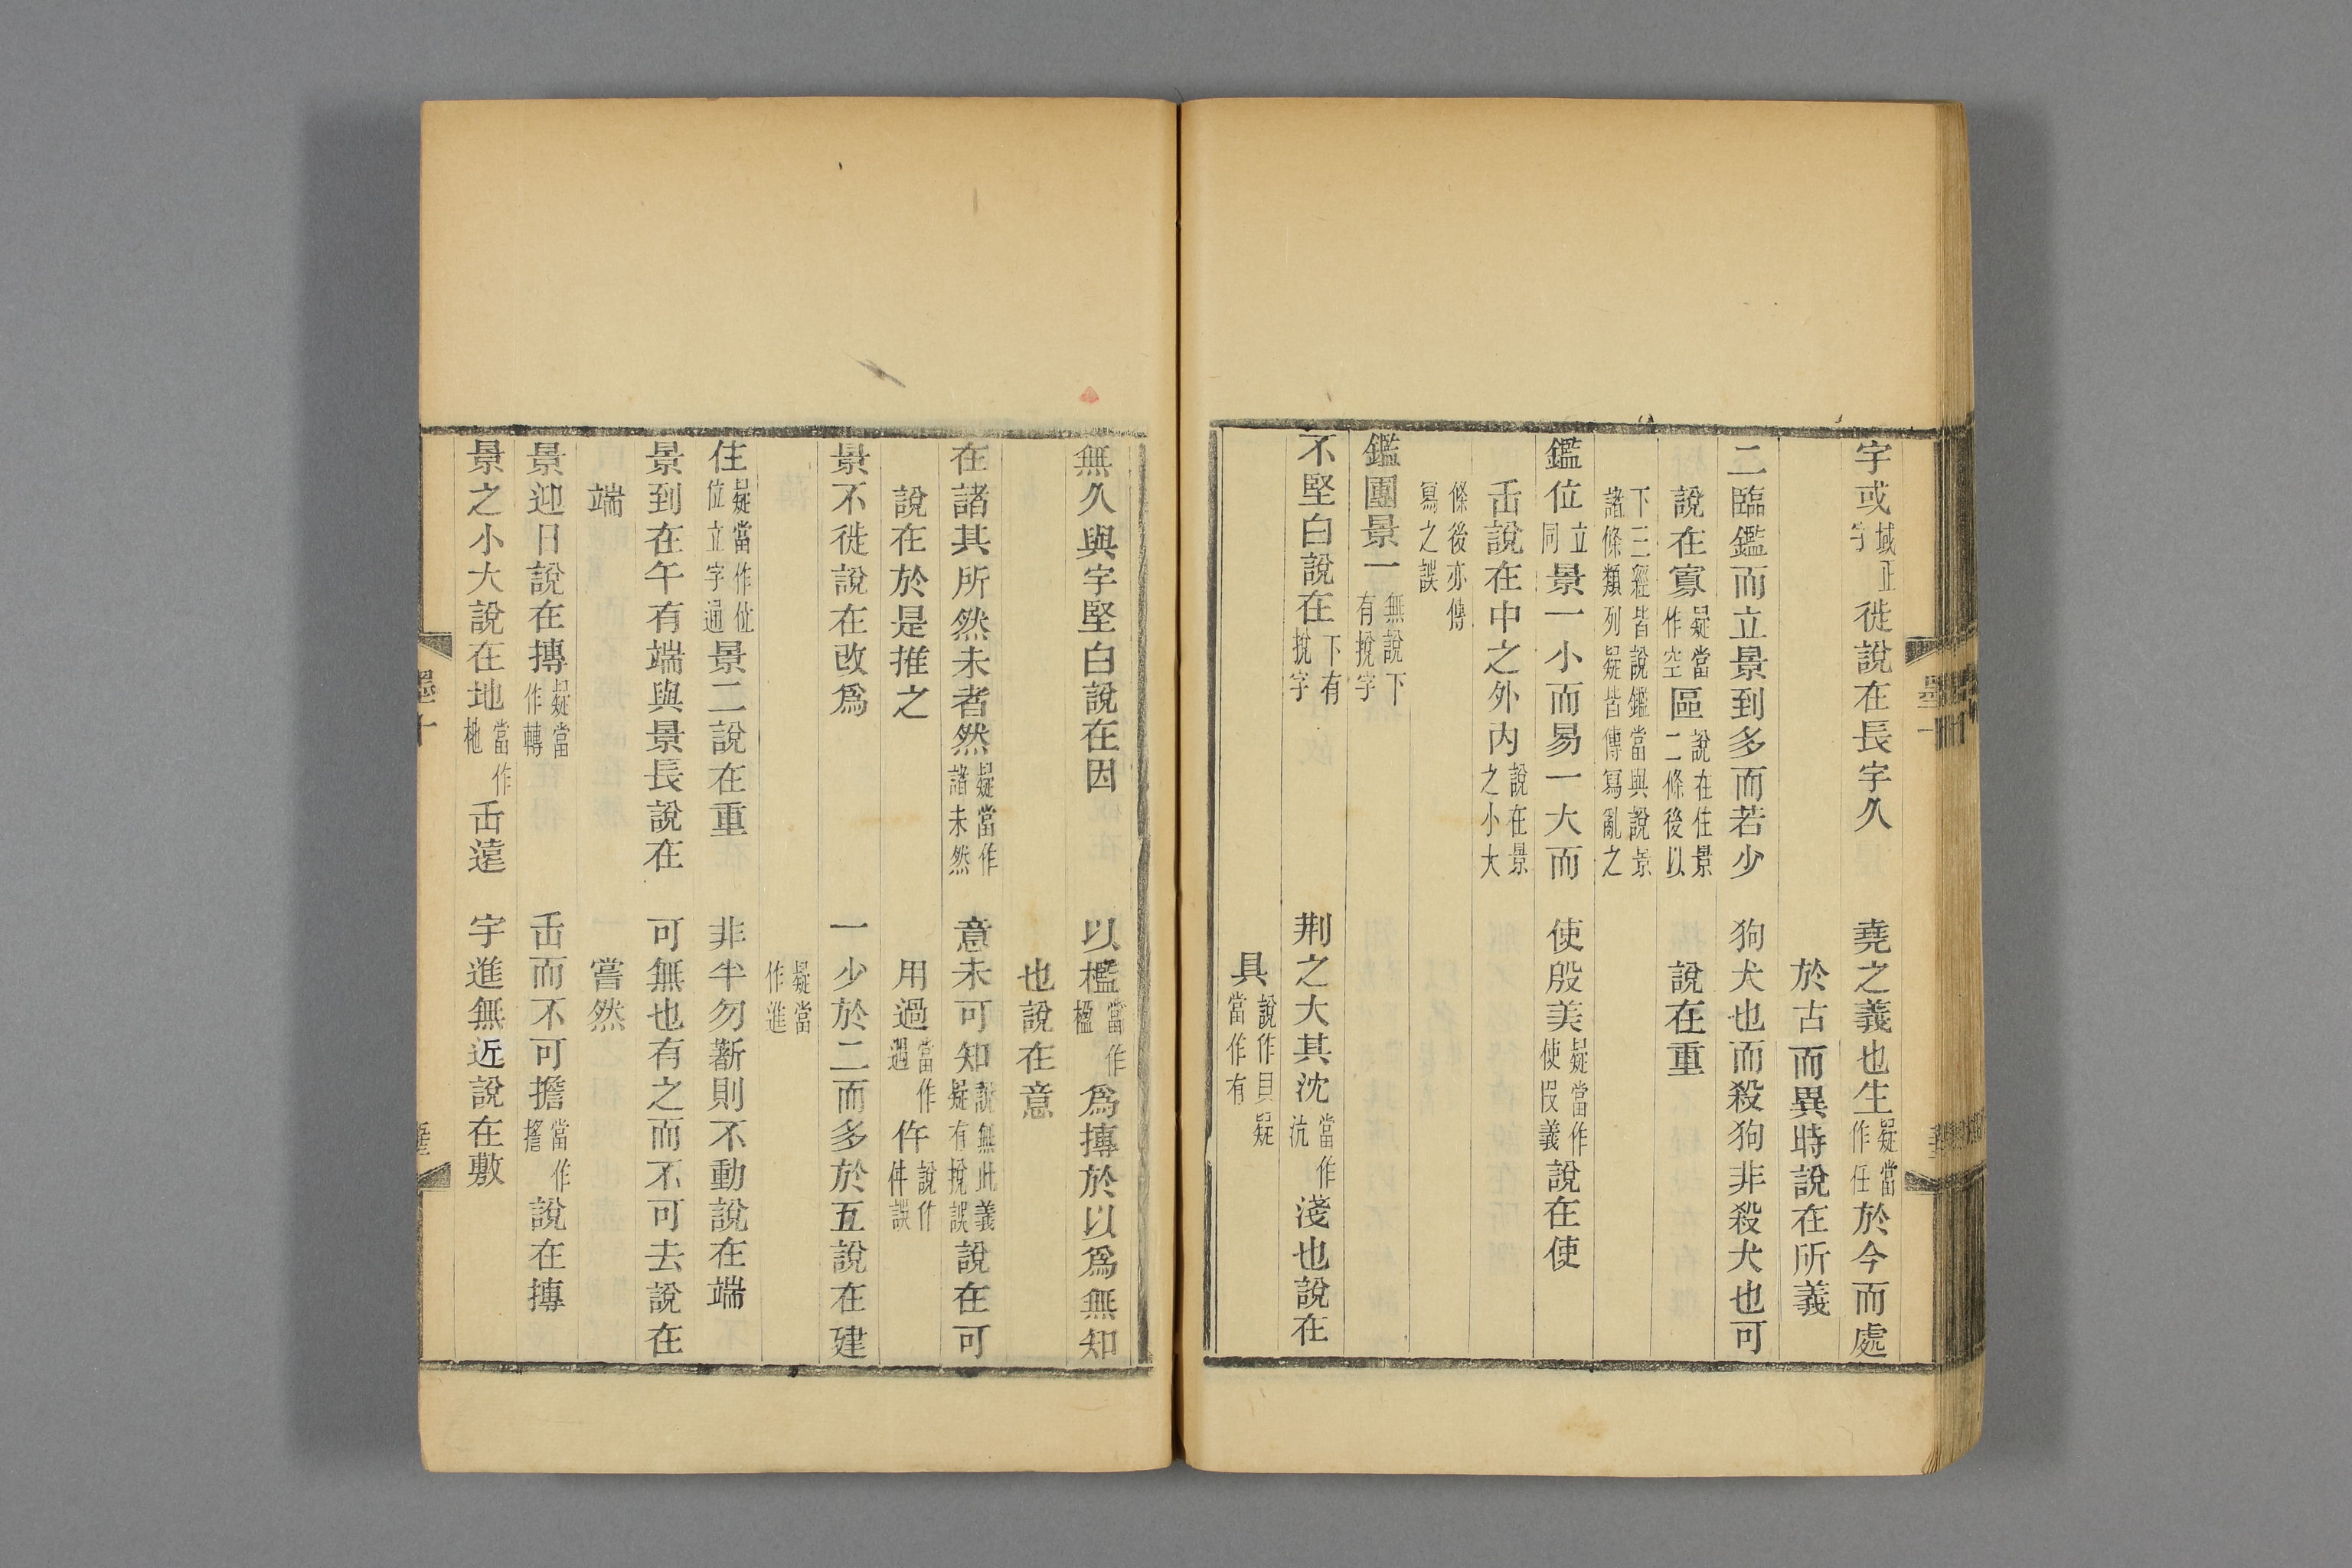 宇或域正宇徙說在長宇久　堯之義也生疑當作任於今而處
於古而異時說在所義
二臨鑑而立景到多而若少　狗犬也而殺狗非殺犬也可
說在寡疑當作空區說在住景二條後以　說在重
下三經皆說鑑當與說景諸條類列疑皆傳寫亂之
鑑位立同景一小而易一大而　使殷美疑當作使叚義說在使
𠮷說在中之外內說在景之小大
條後亦傳寫之誤
鑑團景一無說下有挩字
不堅白說在下有挩字　荆之大其沈當作沆淺也說在
具說作貝疑當作有
無久與宇堅白說在因　以檻當作楹爲摶於以爲無知
也說在意
在諸其所然未者然疑當作諸未然　意未可知說無此義疑有挩誤說在可
說在於是推之　用過當作遇仵說作件誤
景不徙說在改爲　一少於二而多於五說在建
疑當作進
住疑當作位位立字通景二說在重　非半勿斱則不動說在端
景到在午有端與景長說在　可無也有之而不可去說在
端　嘗然
景迎日說在摶疑當作轉　缶而不可擔當作㩉說在摶
景之小大說在地當作杝缶遠　宇進無近說在敷